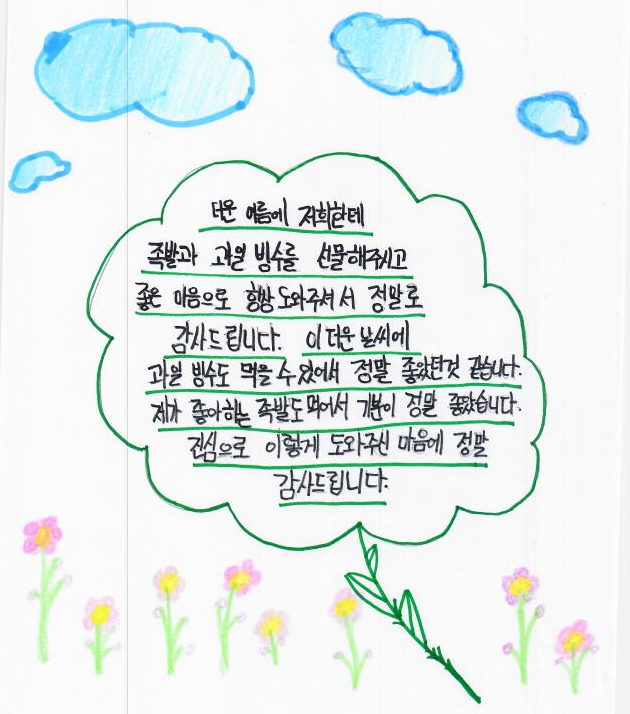 더운 여름에 저희한테
족발과 과일 빙수를 선물해주시고
좋은 마음으로 항상 도와주셔서 정말로
감사드립니다. 이 더운 날씨에
과일 빙수도 먹을 수 있어서 정말 좋았던것 같습니다.
제가 좋아하는 족발도 먹어서 기분이 정말 좋았습니다.
진심으로 이렇게 도와주신 마음에 정말
감사드립니다.